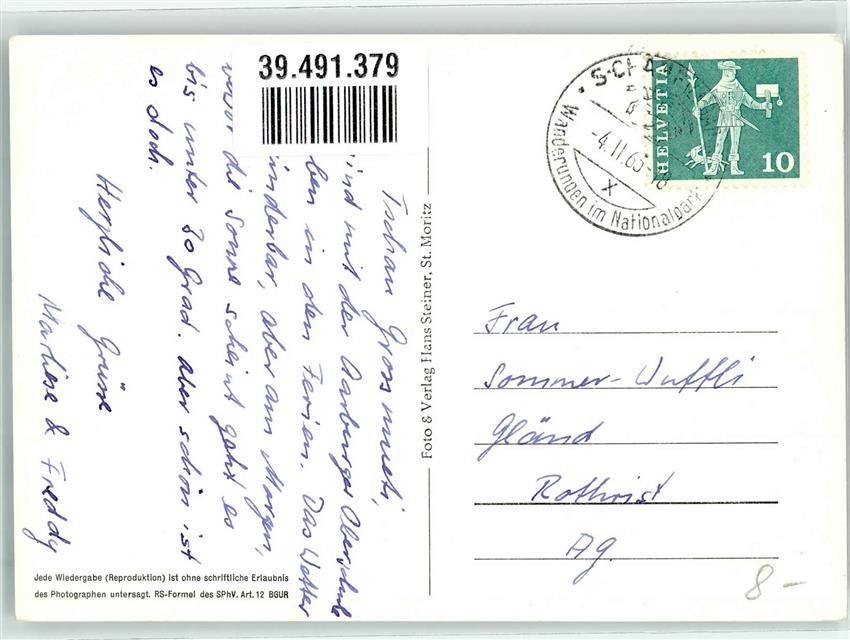 39.491.379
Tschau Grossmueti,
sind mit der Aarburger Oberschule
oben in den Ferien. Das Wetter
wunderbar, aber am Morgen,
bevor die Sonne scheint geht es
bis unter 20 Grad. Aber schön ist
es doch.
Herzliche Grüsse
Marlise & Freddy
Jede Wiedergabe (Reproduktion) ist ohne schriftliche Erlaubnis
des Photographen untersagt. RS-Formel des SPhV. Art. 12 BGUR
Foto & Verlag Hans Steiner, St. Moritz
-4.11.65-18
X
Wanderungen im Nationalpark
HELVETIA
10
Frau
Sommer-Wuffli
Gländ
Rothrist
Ag.
8-